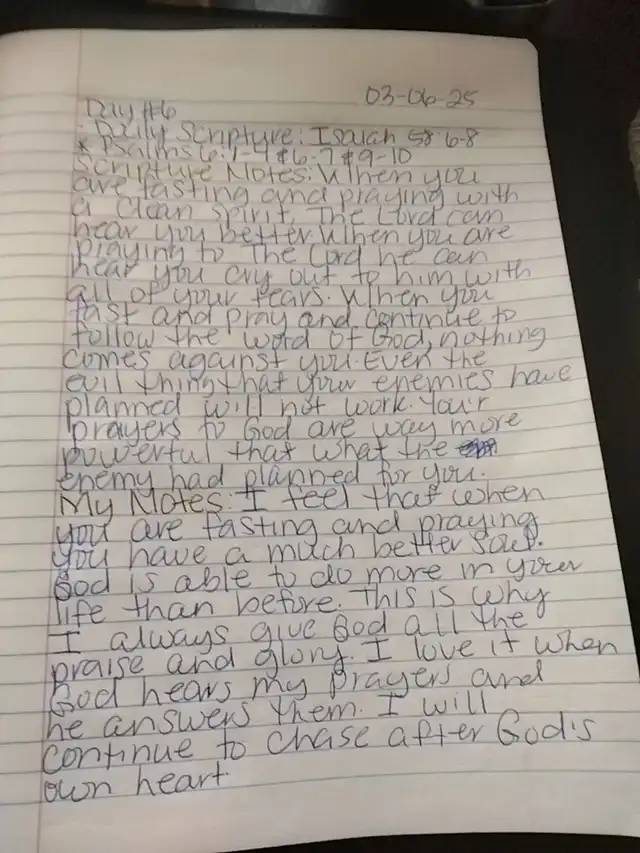 03-06-25
Day #6
- Daily Scripture: Isaiah 58:6-8
* Psalms 6:1-4 & 6-7 & 9-10
Scripture Notes: When you
are fasting and praying with
a clean spirit. The Lord can
hear you better. When you are
praying to The Lord he can
hear you cry out to him with
all of your tears. When you
fast and pray and continue to
follow the word of God, nothing
comes against you. Even the
evil thing that your enemies have
planned will not work. Your
prayers to God are way more
powerful that what the
enemy had planned for you.
My Notes: I feel that when
you are fasting and praying
you have a much better soul.
God is able to do more in your
life than before. This is why
I always give God all the
praise and glory. I love it when
God hears my prayers and
he answers them. I will
continue to chase after God's
own heart.